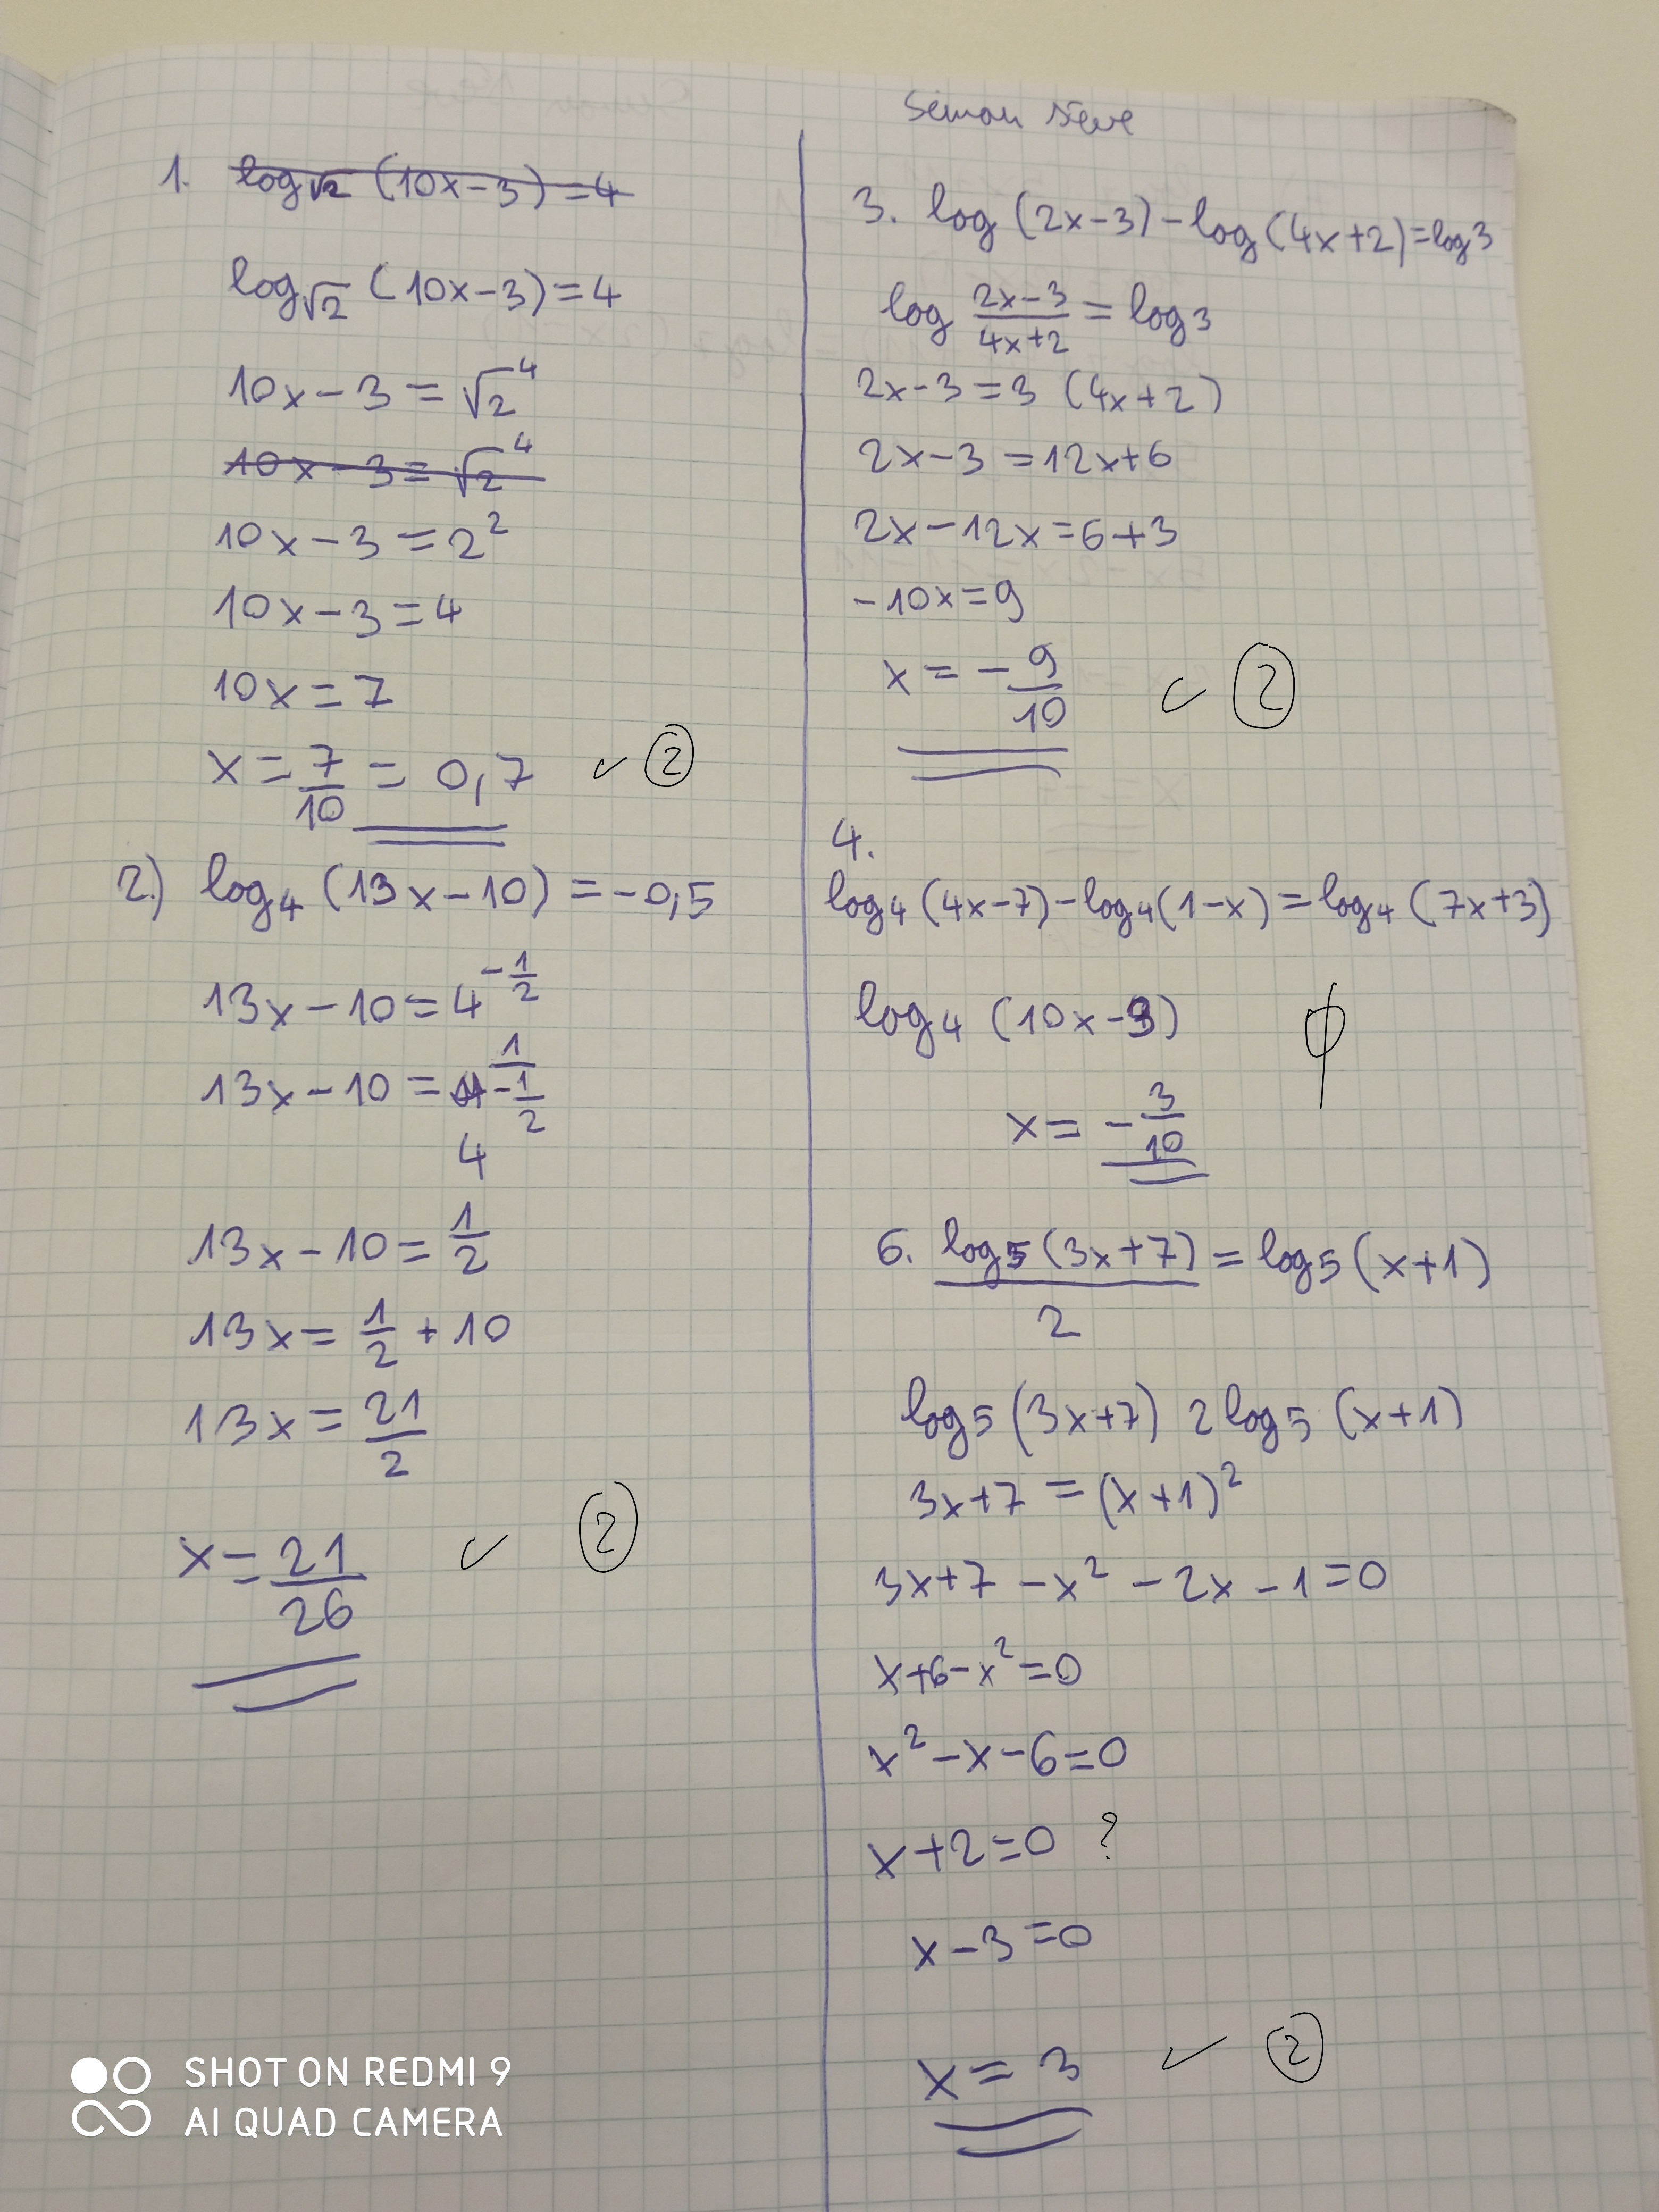 Simon Neve
1. log√2 (10x-3) = 4
log√2 (10x-3) = 4
10x - 3 = √2^4
10x - 3 = √2^4
10x - 3 = 2²
10x - 3 = 4
10x = 7
x = 7/10 = 0,7 ✓ ②
2.) log₄ (13x-10) = -0,5
13x - 10 = 4^(-1/2)
13x - 10 = 4^(1/(-1/2))
4
13x - 10 = 1/2
13x = 1/2 + 10
13x = 21/2
x = 21/26 ✓ ②
3. log (2x-3) - log (4x+2) = log 3
log (2x-3)/(4x+2) = log 3
2x-3 = 3 (4x+2)
2x-3 = 12x+6
2x-12x = 6+3
-10x = 9
x = -9/10 ✓ ②
4.
log₄ (4x-7) - log₄ (1-x) = log₄ (7x+3)
log₄ (10x-9) ϕ
x = -3/10
6. log₅ (3x+7)/2 = log₅ (x+1)
log₅ (3x+7) 2 log₅ (x+1)
3x+7 = (x+1)²
3x+7 - x² - 2x - 1 = 0
x+6-x² = 0
x² - x - 6 = 0
x+2 = 0 ?
x-3 = 0
x = 3 ✓ ②
SHOT ON REDMI 9
AI QUAD CAMERA